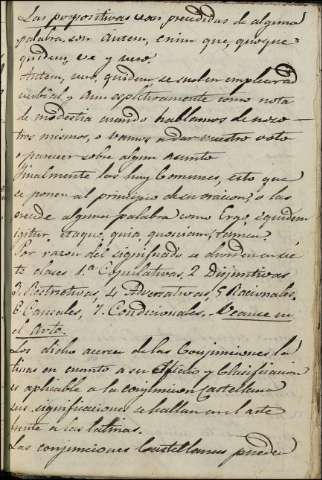 Las pospositivas van precedidas de alguna
palabra. son Autem, enim que, quoque
quidem, ve y vero.
Autem, vero, quidem se suelen emplear
y aun espletivamente como nota
de modestia cuando hablamos de noso-
tros mismos, o vamos a dar nuestro voto
o parecer sobre algun asunto
finalmente las hay Comunes, esto que
se ponen al principio de su oracion, o las
precede alguna palabra como Ergo, equidem
igitur, itaque, quia, quoniam, tamen.
Por razon del significado se dividen en sie-
te clases 1.ª Copulativas, 2. Disjuntivas
3. Restrictivas, 4. Adversativas, 5. Racionales,
6. Causales, 7. Condicionales. Veanse en
el Arte.
Lo dicho acerca de las Conjunciones la-
tinas en cuanto a su oficio y Clasificacion
es aplicable a la conjuncion Castellana
sus significaciones se hallan en el arte
junto a las latinas.
Las conjunciones Castellanas pueden